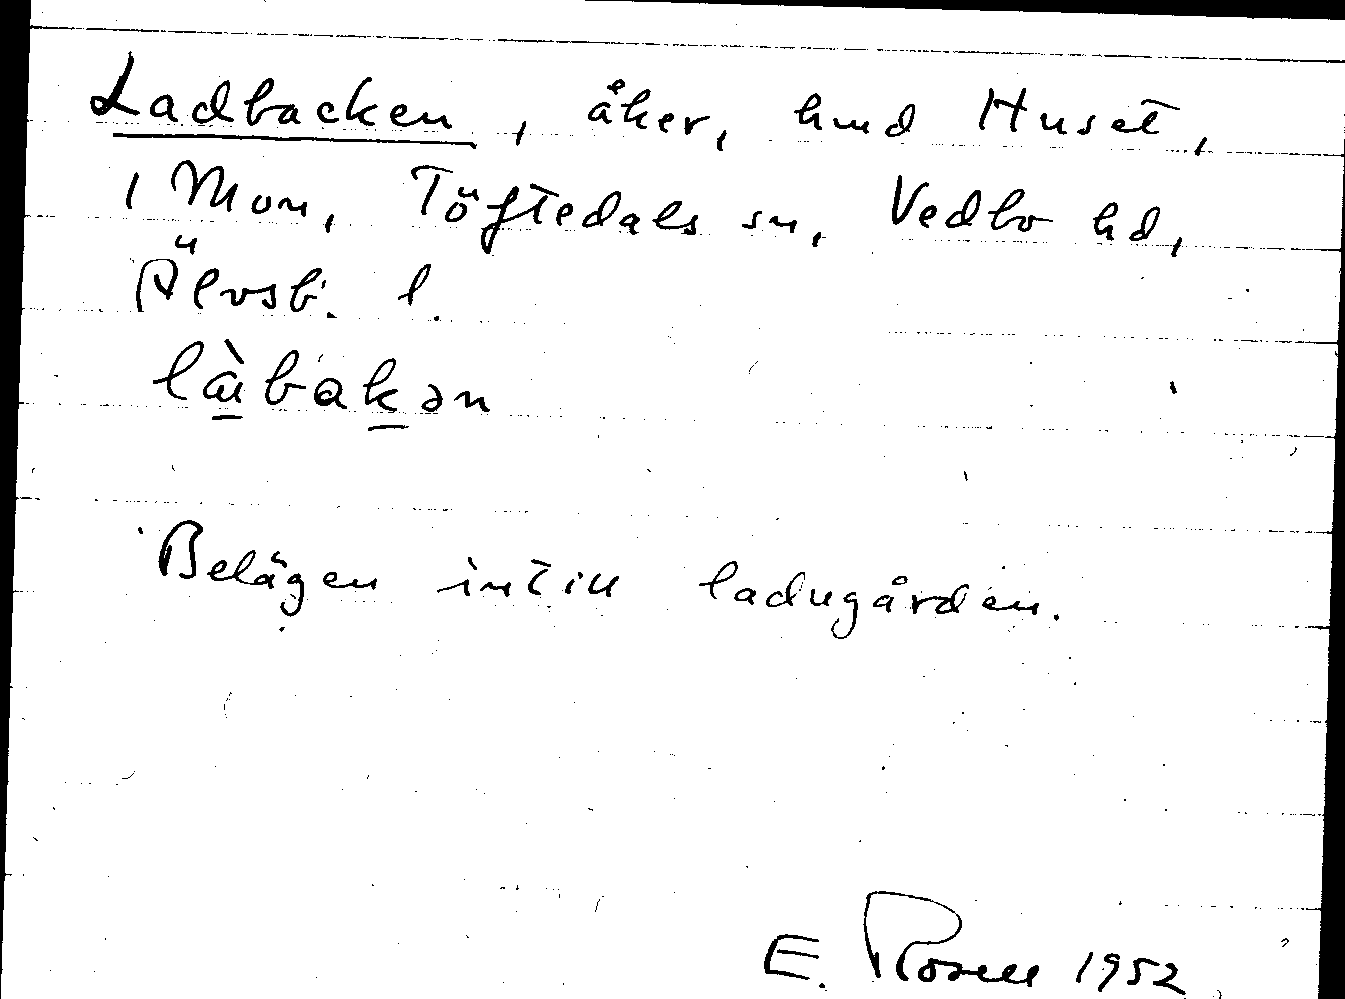 Ladbacken, åker, hmd Huset,
i Mon, Töftedals sn, Vedbo hd,
Älvsb. l.
làbakən
Belägen intill ladugården.
E. Rosell 1952